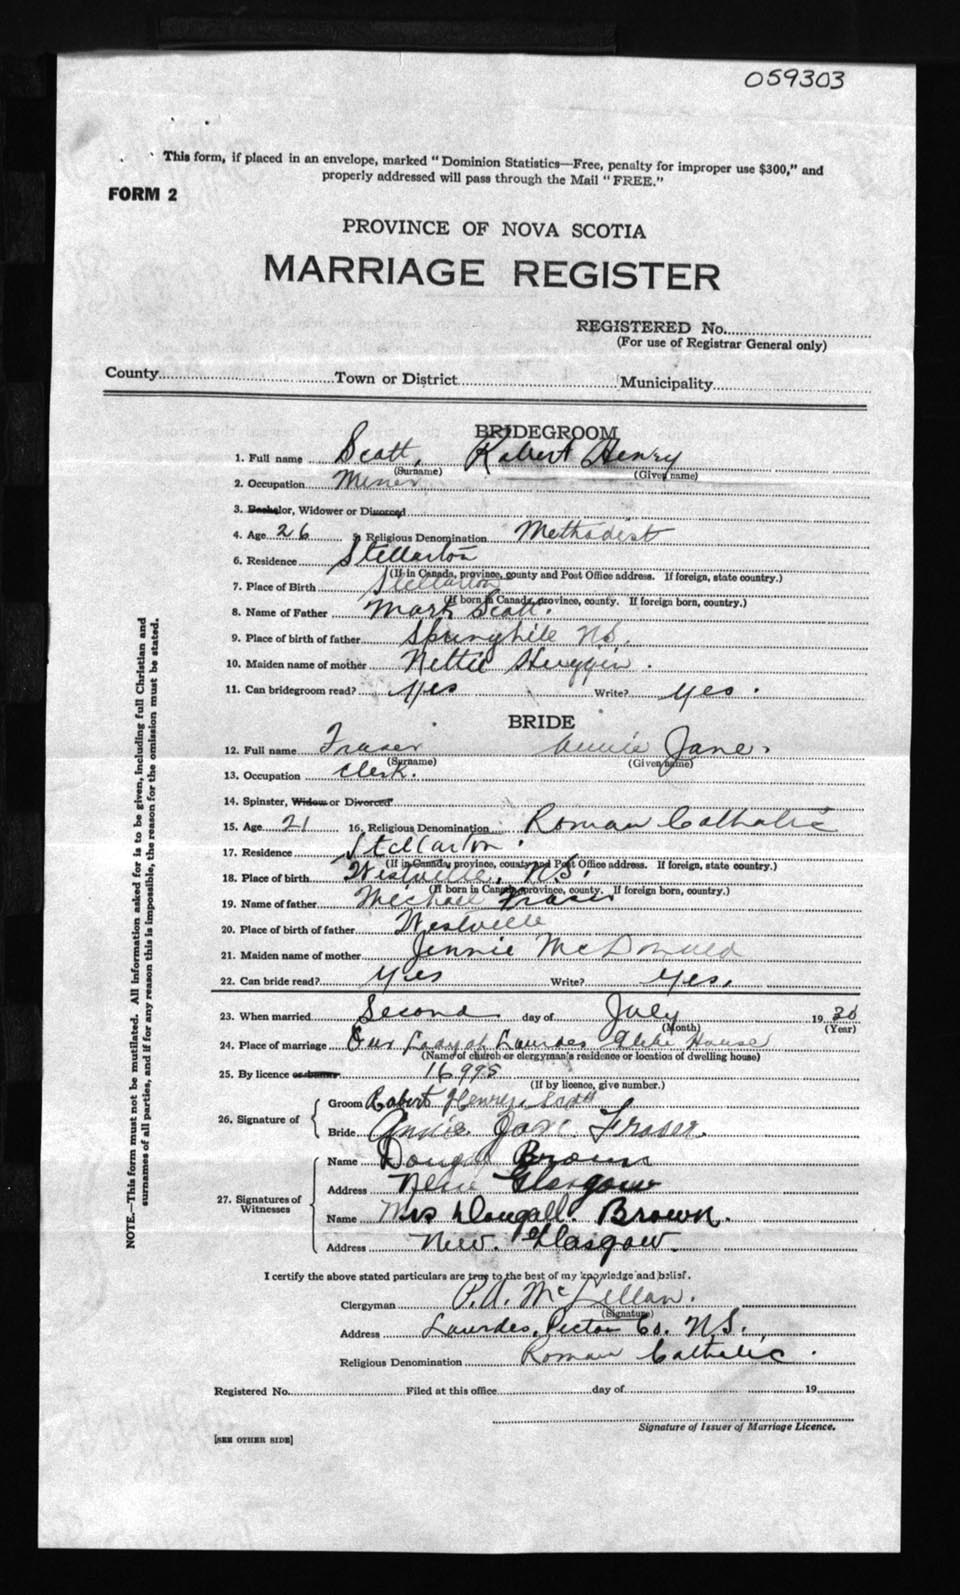 059303
This form, if placed in an envelope, marked "Dominion Statistics—Free, penalty for improper use $300," and
properly addressed will pass through the Mail "FREE."
FORM 2
PROVINCE OF NOVA SCOTIA
MARRIAGE REGISTER
REGISTERED No.
(For use of Registrar General only)
County Town or District Municipality
BRIDEGROOM
1. Full name Scott, Robert Henry
(Surname) (Given name)
2. Occupation Miner
3. Bachelor, Widower or Divorced
4. Age 26 5. Religious Denomination Methodist
6. Residence Stellarton
(If in Canada, province, county and Post Office address. If foreign, state country.)
7. Place of Birth Stellarton
(If born in Canada, province, county. If foreign born, country.)
8. Name of Father Mark Scott.
9. Place of birth of father Springhill N.S.
10. Maiden name of mother Nettie Huggin.
11. Can bridegroom read? Yes Write? Yes.
BRIDE
12. Full name Fraser Annie Jane.
(Surname) (Given name)
13. Occupation Clerk.
14. Spinster, Widow or Divorced
15. Age 21 16. Religious Denomination Roman Catholic
17. Residence Stellarton.
(If in Canada, province, county and Post Office address. If foreign, state country.)
18. Place of birth Westville, N.S.
(If born in Canada, province, county. If foreign born, country.)
19. Name of father Michael Fraser
20. Place of birth of father Westville
21. Maiden name of mother Jennie McDonald
22. Can bride read? Yes Write? Yes.
23. When married Second day of July 19 30
(Month) (Year)
24. Place of marriage Our Lady of Lourdes Glebe House
(Name of church or clergyman's residence or location of dwelling house)
25. By licence or banns 16995
(If by licence, give number.)
26. Signature of
Groom Robert Henry Scott
Bride Annie Jane Fraser.
27. Signatures of Witnesses
Name Dougall Brown
Address New Glasgow
Name Mrs Dougall. Brown.
Address New. Glasgow.
I certify the above stated particulars are true to the best of my knowledge and belief.
Clergyman P.A. McLellan.
(Signature)
Address Lourdes, Pictou Co. N.S.
Religious Denomination Roman Catholic.
Registered No. Filed at this office day of 19
Signature of Issuer of Marriage Licence.
[SEE OTHER SIDE]
NOTE.—This form must not be mutilated. All information asked for is to be given, including full Christian and
surnames of all parties, and if for any reason this is impossible, the reason for the omission must be stated.